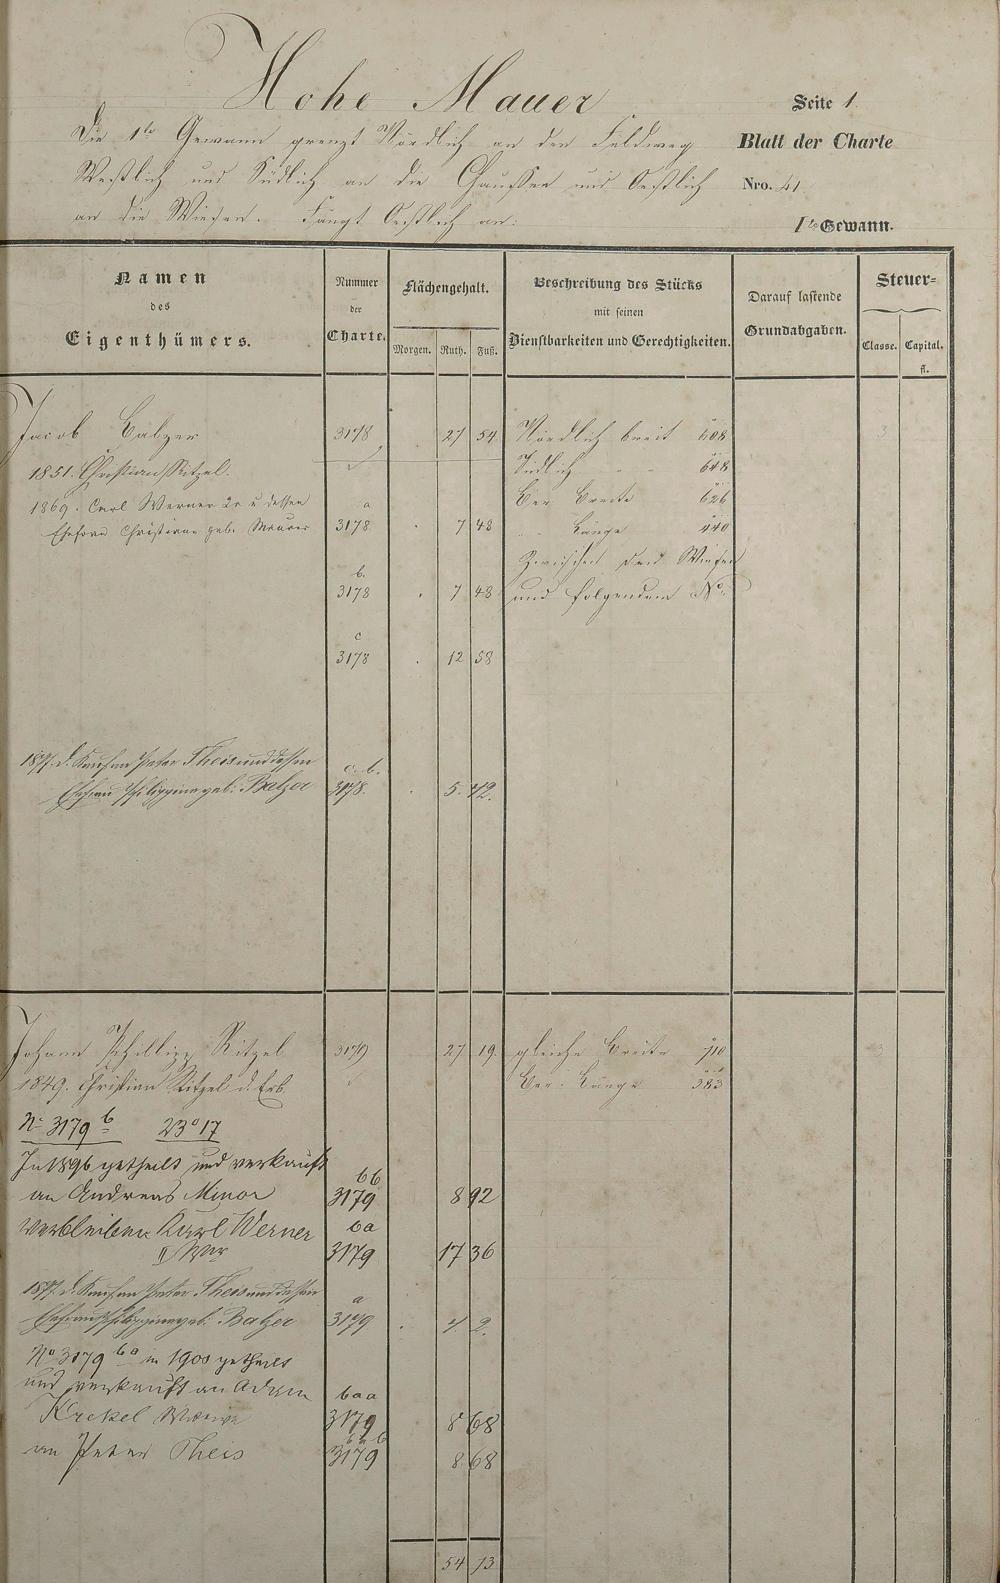 Hohe Mauer
Seite 1.
Die 1te Gewann grenzt Nördlich an den Feldweg
Blatt der Charte
Westlich und Südlich an die Chaussee und Oestlich
Nro. 41.
an die Wiesen. Fängt Oestlich an:
1te Gewann.
Namen
des
Eigenthümers.
Nummer
der
Charte.
Flächengehalt.
Morgen. Ruth. Fuß.
Beschreibung des Stücks
mit seinen
Dienstbarkeiten und Gerechtigkeiten.
Darauf lastende
Grundabgaben.
Steuer-
Classe. Capital.
fl.
Jacob Balzer 3178 27 54 Nördlich breit 608 3
1851. Christian Ritzel. Südlich - - 648
1869. Carl Werner 2r u dessen a Ber Breite 626
Ehefrau Christiane geb. Maurer 3178 . 7 48 - - Länge 440
Zwischen den Wiesen
b.
3178 . 7 48 und folgendem No.
c
3178 . 12 58
1897. d. Kauf an Peter Theis und dessen c. b.
Ehefrau Philippine geb. Balzer 3178. . 5. 42.
Johann Phillipp Ritzel 3179 27 19 gleiche Breite 710 3
1849. Christian Ritzel d. Erb. Ber: Länge 383
No 3179 b 23° 17
In 1896 getheilt und verkauft bb
an Andreas Minor 3179 8 92
verbleiben Karl Werner ba
II 3179 17 36
1897. d. Kauf an Peter Theis und dessen a
Ehefrau Philippine geb. Balzer 3179 . 4 2.
No 3179 ba in 1900 getheilt
und verkauft an Adam baa
Krekel 3179 8 68
bab
an Peter Theis 3179 8 68
54 73